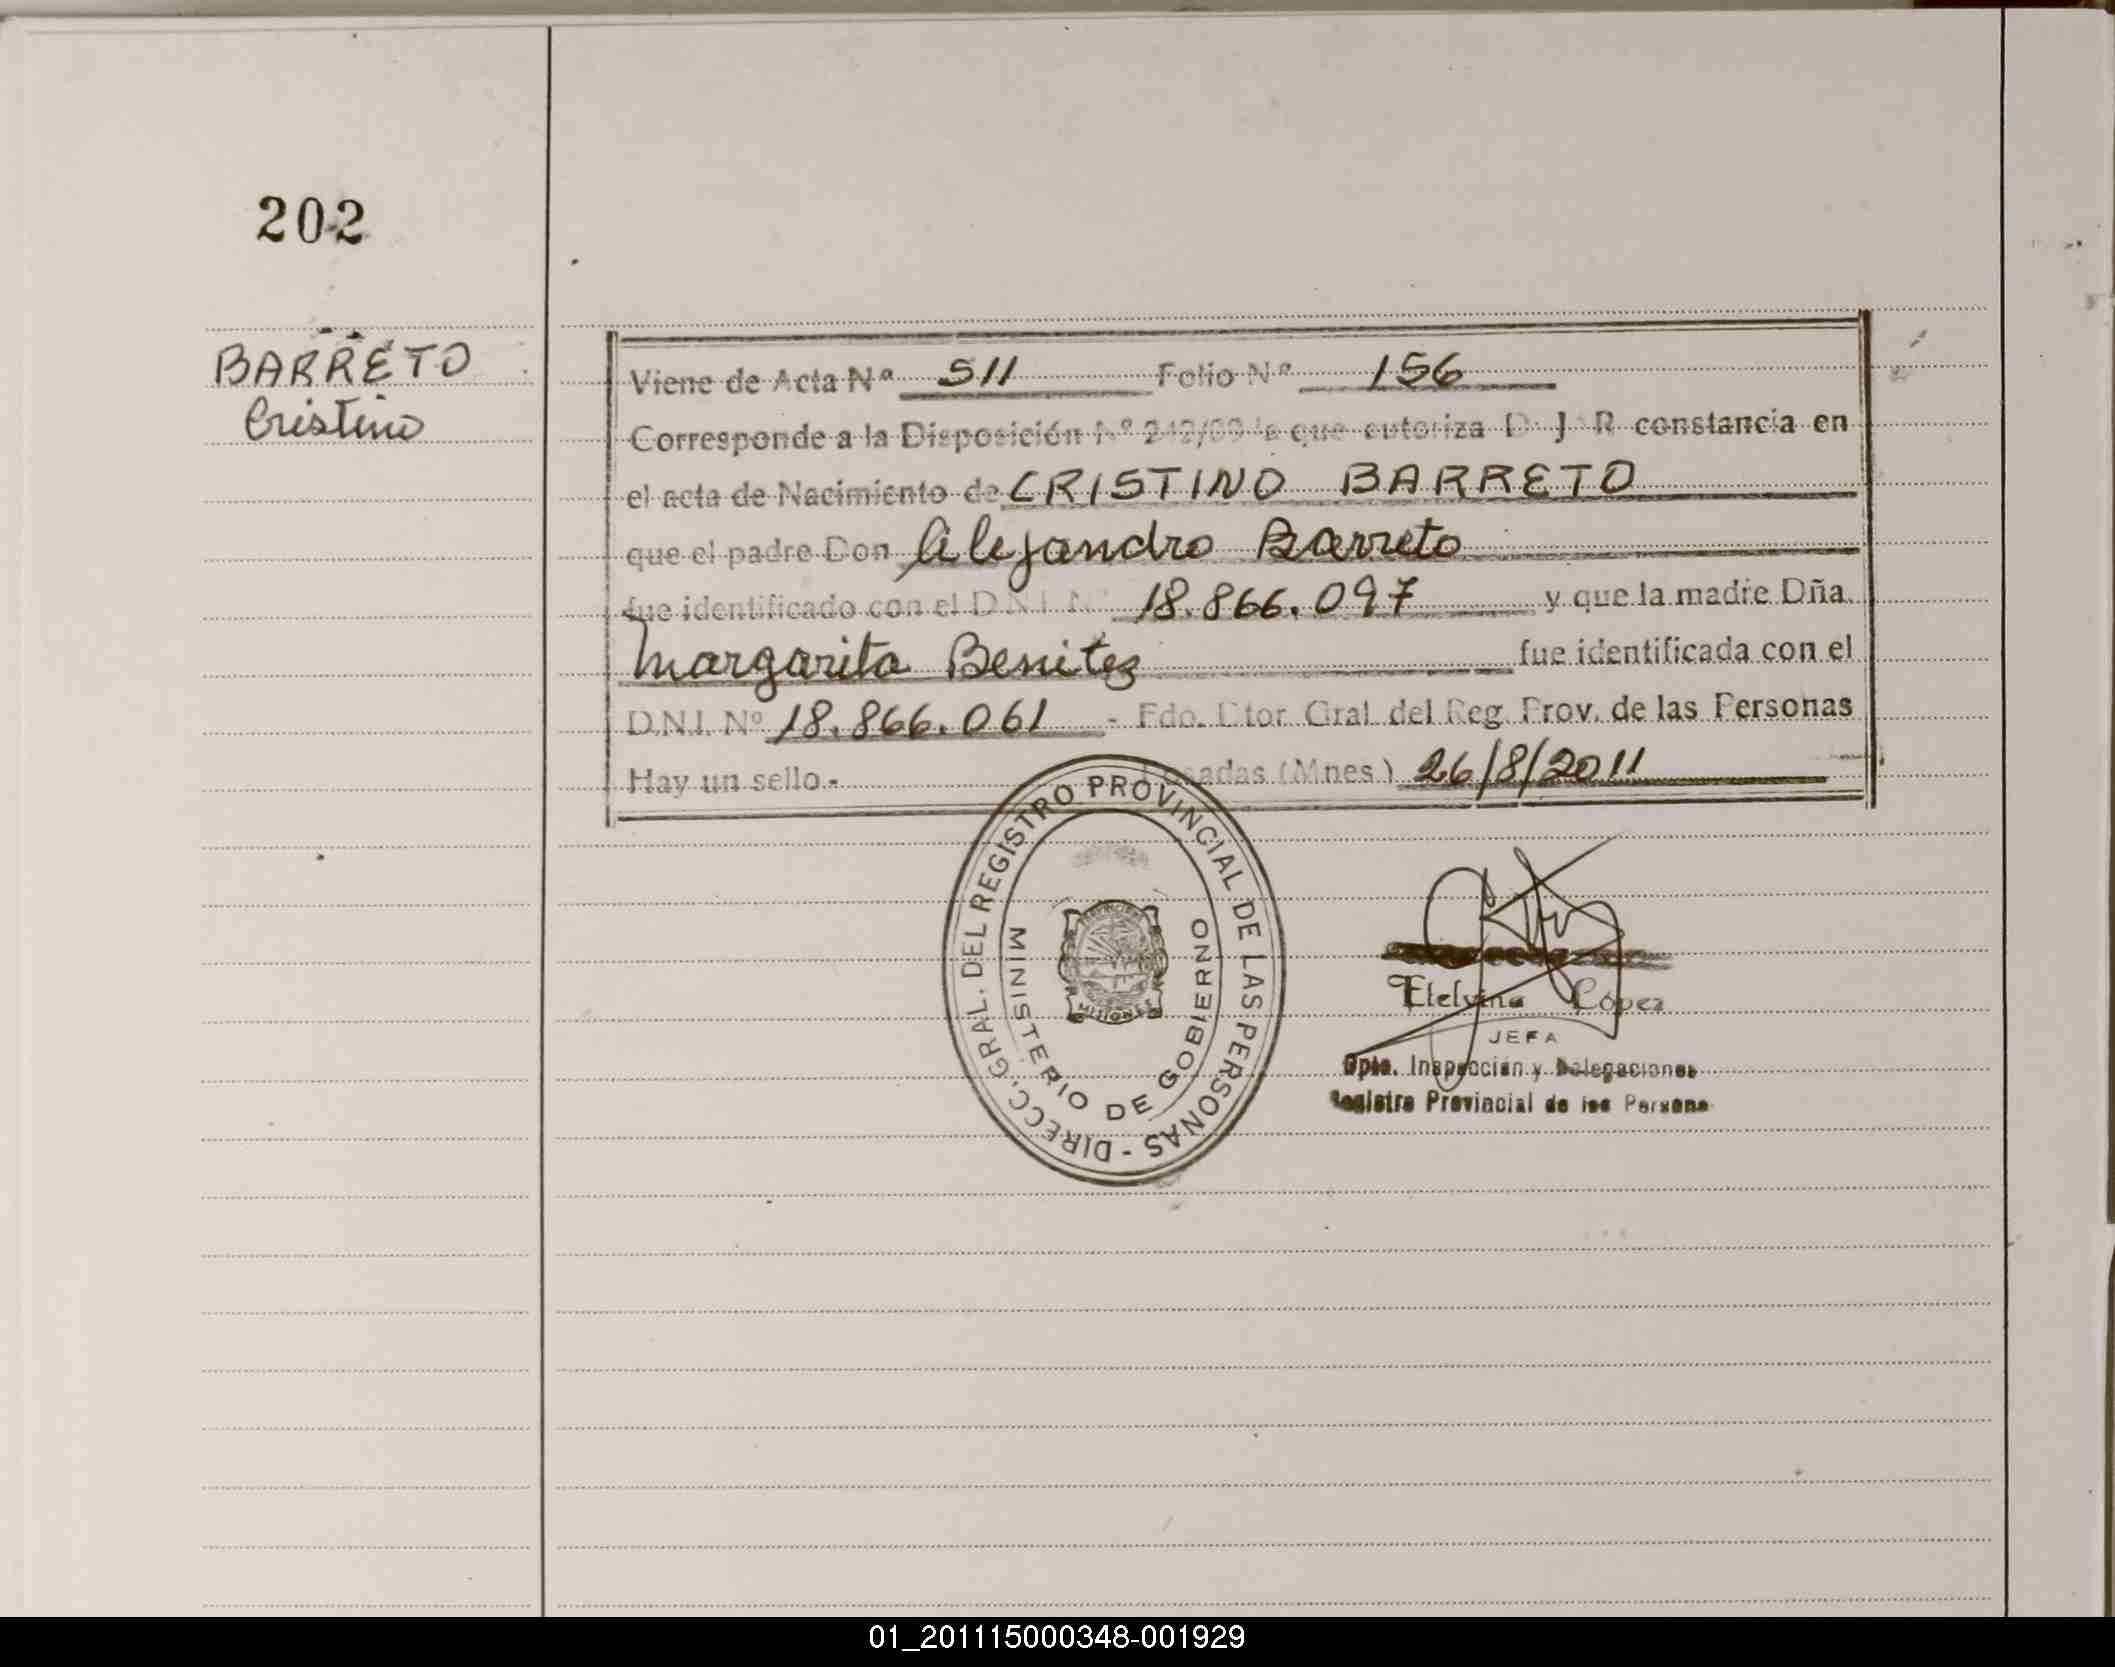 202
BARRETO
Cristino
Viene de Acta Nº 511 Folio Nº 156
Corresponde a la Disposición Nº 242/09 la que autoriza D J R constancia en
el acta de Nacimiento de CRISTINO BARRETO
que el padre Don Alejandro Barreto
fue identificado con el D.N.I. Nº 18.866.097 y que la madre Dña.
Margarita Benitez fue identificada con el
D.N.I. Nº 18.866.061 - Fdo. Dtor. Gral. del Reg. Prov. de las Personas
Hay un sello.- Posadas (Mnes) 26/8/2011
DIRECC. GRAL. DEL REGISTRO PROVINCIAL DE LAS PERSONAS -
MINISTERIO DE GOBIERNO
MISIONES
Etelvina López
JEFA
Dpto. Inspección y Delegaciones
Registro Provincial de las Persona
01_201115000348-001929